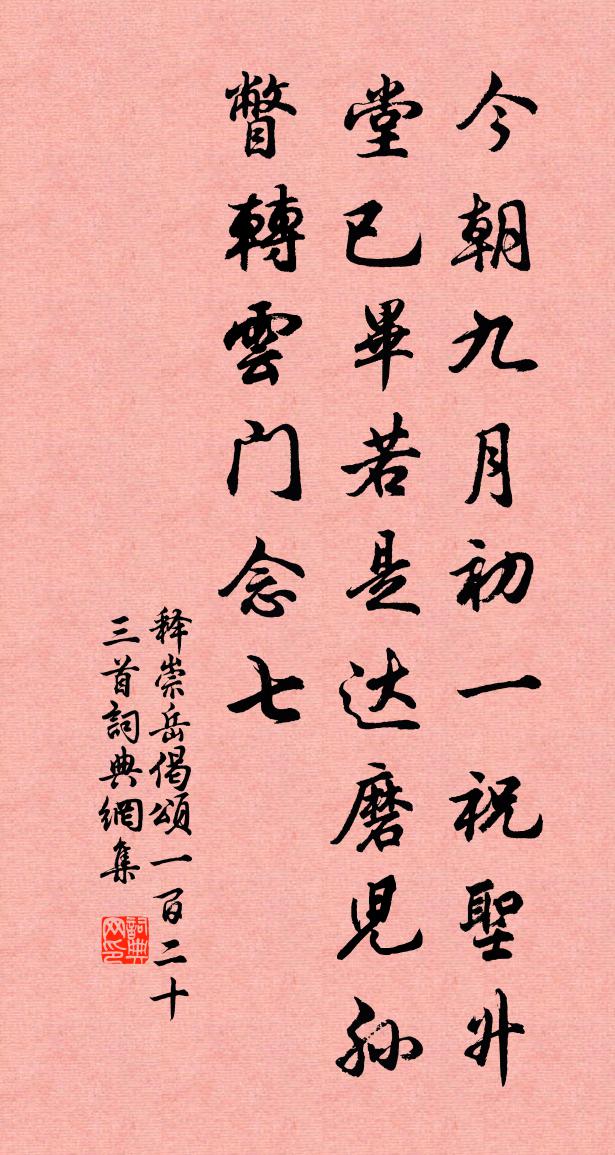 今朝九月初一祝聖升
堂已畢若是达磨児孙
瞥轉雲门念七
释崇岳偈頌一百二十
三首詞典網集
詞典网印